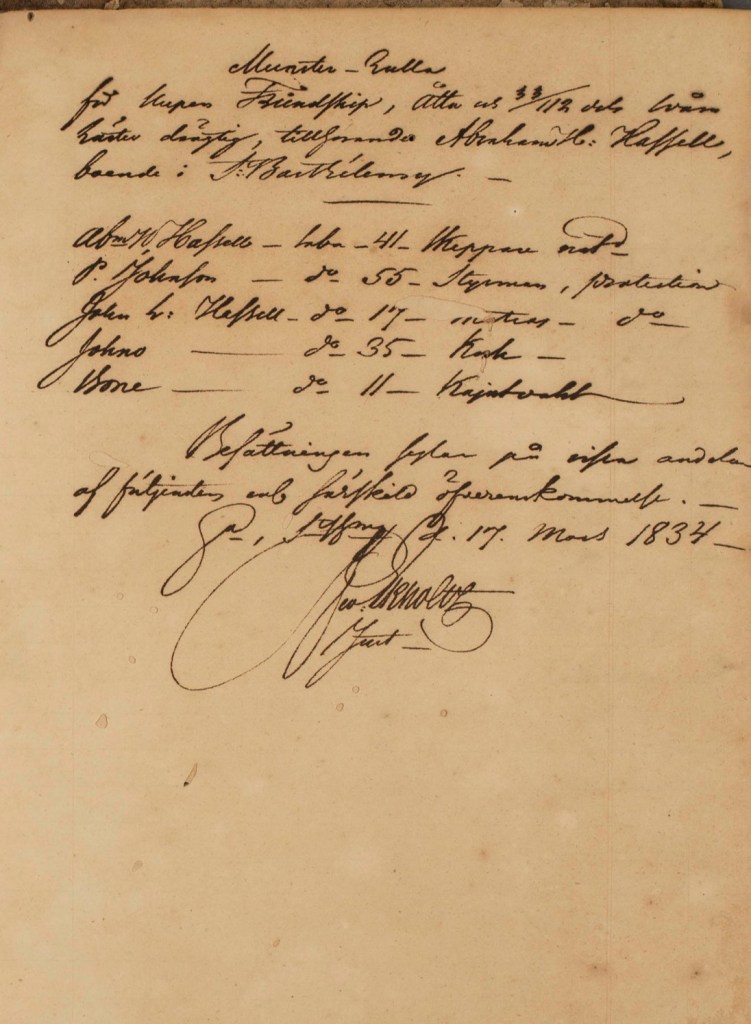 Munster-Rulla
för slupen Friendship, Åtta och 33/112 dels svåra
läster drägtig, tillhörande Abraham H: Hassell,
boende i St Barthélemy. —
Abm H, Hassell — Saba — 41 — Skeppare natd
P. Johnson — do 55 — Styrman, protection
John H: Hassell — do — 17 — matros — do —
Johno — do — 35 — Kock —
Bone — do — 11 — Kajutvakt
Besättningen seglar på vissa andelar
af följande särskild öfverenskommelse. —
d. 17. Mars 1834 —
Geo: Ekholtz
Just —